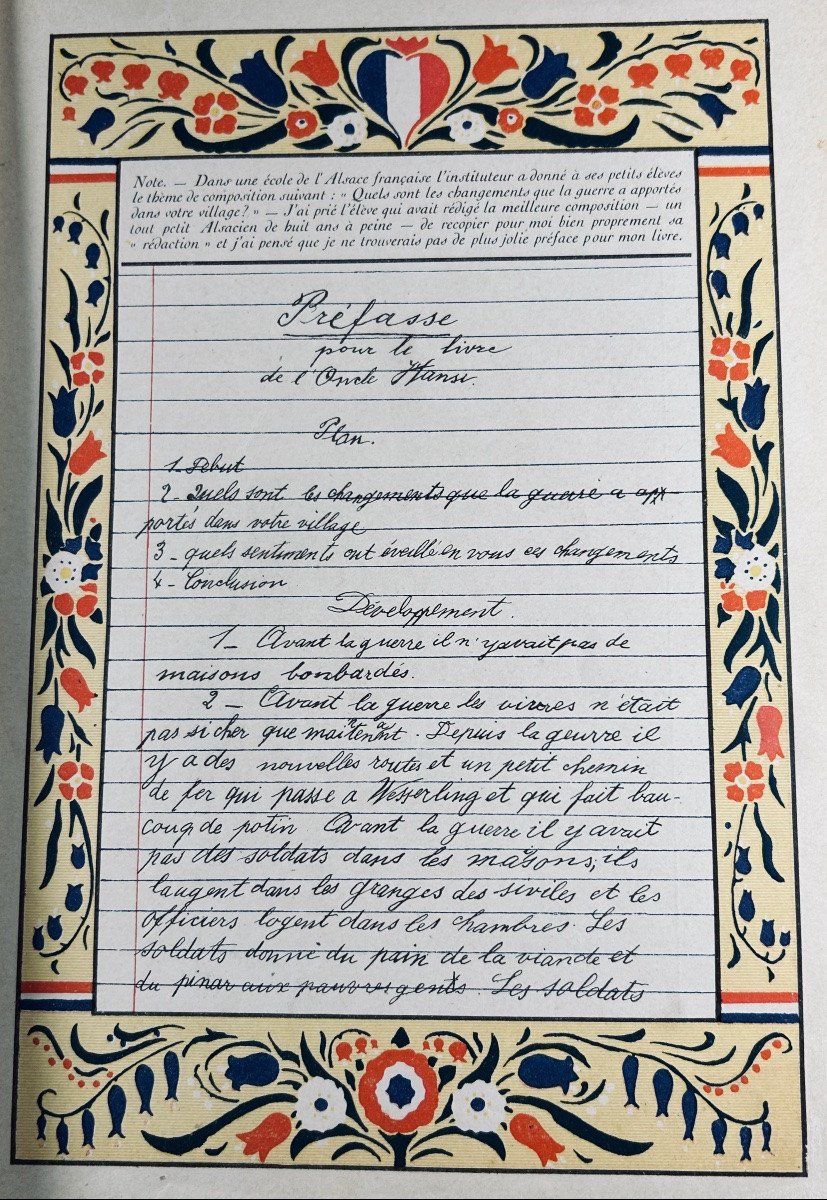 Note. — Dans une école de l'Alsace française l'instituteur a donné à ses petits élèves
le thème de composition suivant : « Quels sont les changements que la guerre a apportés
dans votre village? » — J'ai prié l'élève qui avait rédigé la meilleure composition — un
tout petit Alsacien de huit ans à peine — de recopier pour moi bien proprement sa
« rédaction » et j'ai pensé que je ne trouverais pas de plus jolie préface pour mon livre.
Préfasse
pour le livre
de l'Oncle Hansi.
Plan.
1 - Début
2 - Quels sont les changements que la guerre a app-
portés dans votre village
3 - quels sentiments ont éveillé en vous ces changements
4 - Conclusion
Développement.
1 - Avant la guerre il n'y avait pas de
maisons bonbardés.
2 - Avant la guerre les vivres n'était
pas si cher que maintenant. Depuis la geurre il
y a des nouvelles routes et un petit chemin
de fer qui passe a Wesserling et qui fait bau-
coup de potin Avant la guerre il y avait
pas des soldats dans les maisons, ils
laugent dans les granges des siviles et les
officiers logent dans les chambres. Les
soldats donne du pain de la viande et
du pinar aux pauvres gents. Les soldats